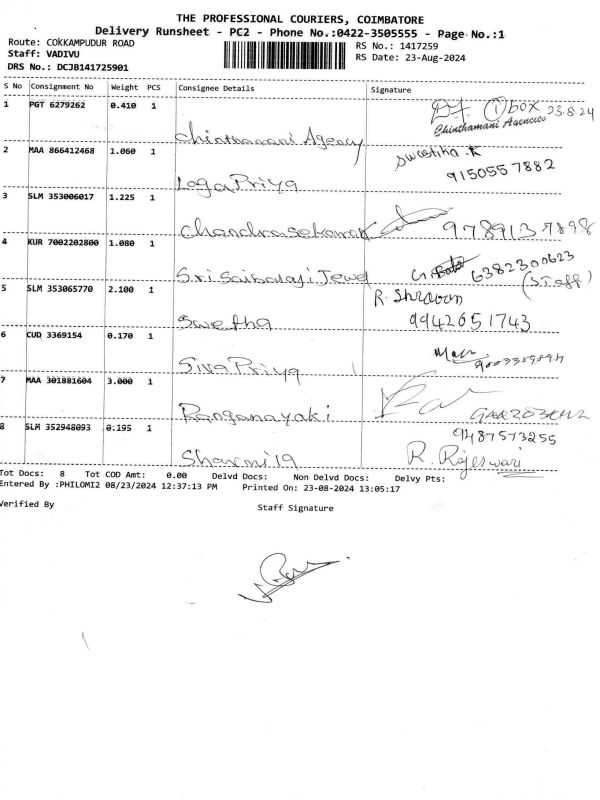 THE PROFESSIONAL COURIERS, COIMBATORE
Delivery Runsheet - PC2 - Phone No.:0422-3505555 - Page No.:1
Route: COKKAMPUDUR ROAD
Staff: VADIVU
DRS No.: DCJB141725901
RS No.: 1417259
RS Date: 23-Aug-2024
S No Consignment No Weight PCS Consignee Details Signature
1 PGT 6279262 0.410 1
① box 23.8.24
Chinthamani Agencies
Chinthamani Agency
2 MAA 866412468 1.060 1
Swastika.K
9150557882
LogaPriya
3 SLM 353006017 1.225 1
Chandrasekaran 9789137898
4 KUR 7002202800 1.080 1
6382300623
(Staff)
Sri Saibalaji Jewel
5 SLM 353065770 2.100 1
R. Shravan
Swetha 9942651743
6 CUD 3369154 0.170 1
SivaPriya
7 MAA 301881604 3.000 1
Ranganayaki
8 SLM 352948093 0.195 1
9487573255
Sharmila R. Rajeswari
Tot Docs: 8 Tot COD Amt: 0.00 Delvd Docs: Non Delvd Docs: Delvy Pts:
Entered By :PHILOMI2 08/23/2024 12:37:13 PM Printed On: 23-08-2024 13:05:17
Verified By
Staff Signature